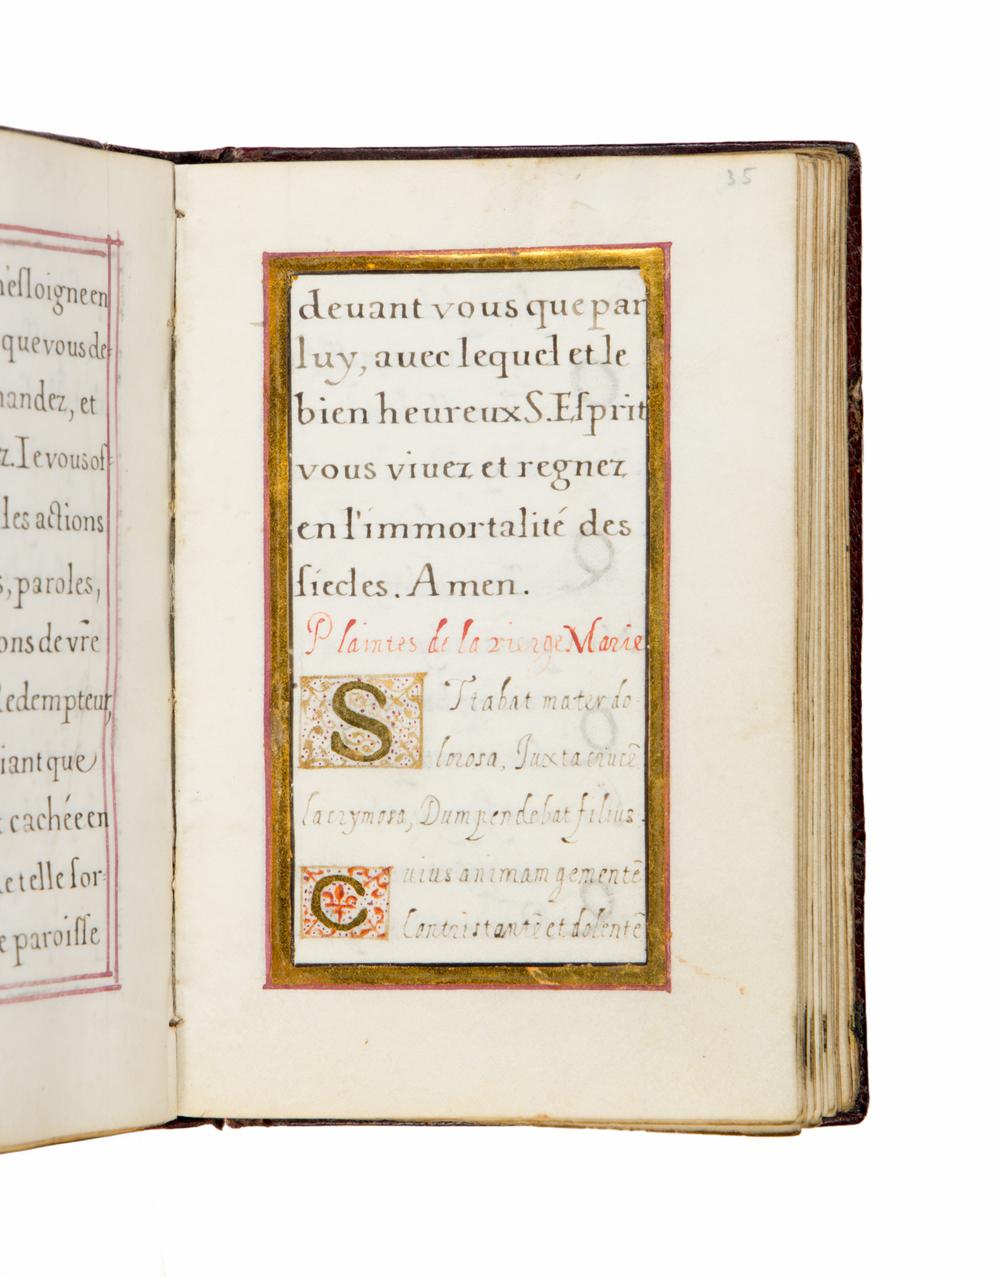 n'esloigne en
que vous de-
mandez, et
z. Ie vous of-
les actions
s, paroles,
ons de vr̃e
Redempteur,
iant que
cachée en
de telle sor-
e paroisse
35
deuant vous que par
luy, auec lequel et le
bien heureux S. Esprit
vous viuez et regnez
en l'immortalité des
siecles. Amen.
Plaintes de la vierge Marie
S Ttabat mater do-
lorosa, Juxta crucẽ
lacrymosa, Dum pendebat filius.
C uius animam gementẽ
Contristantẽ et dolentẽ